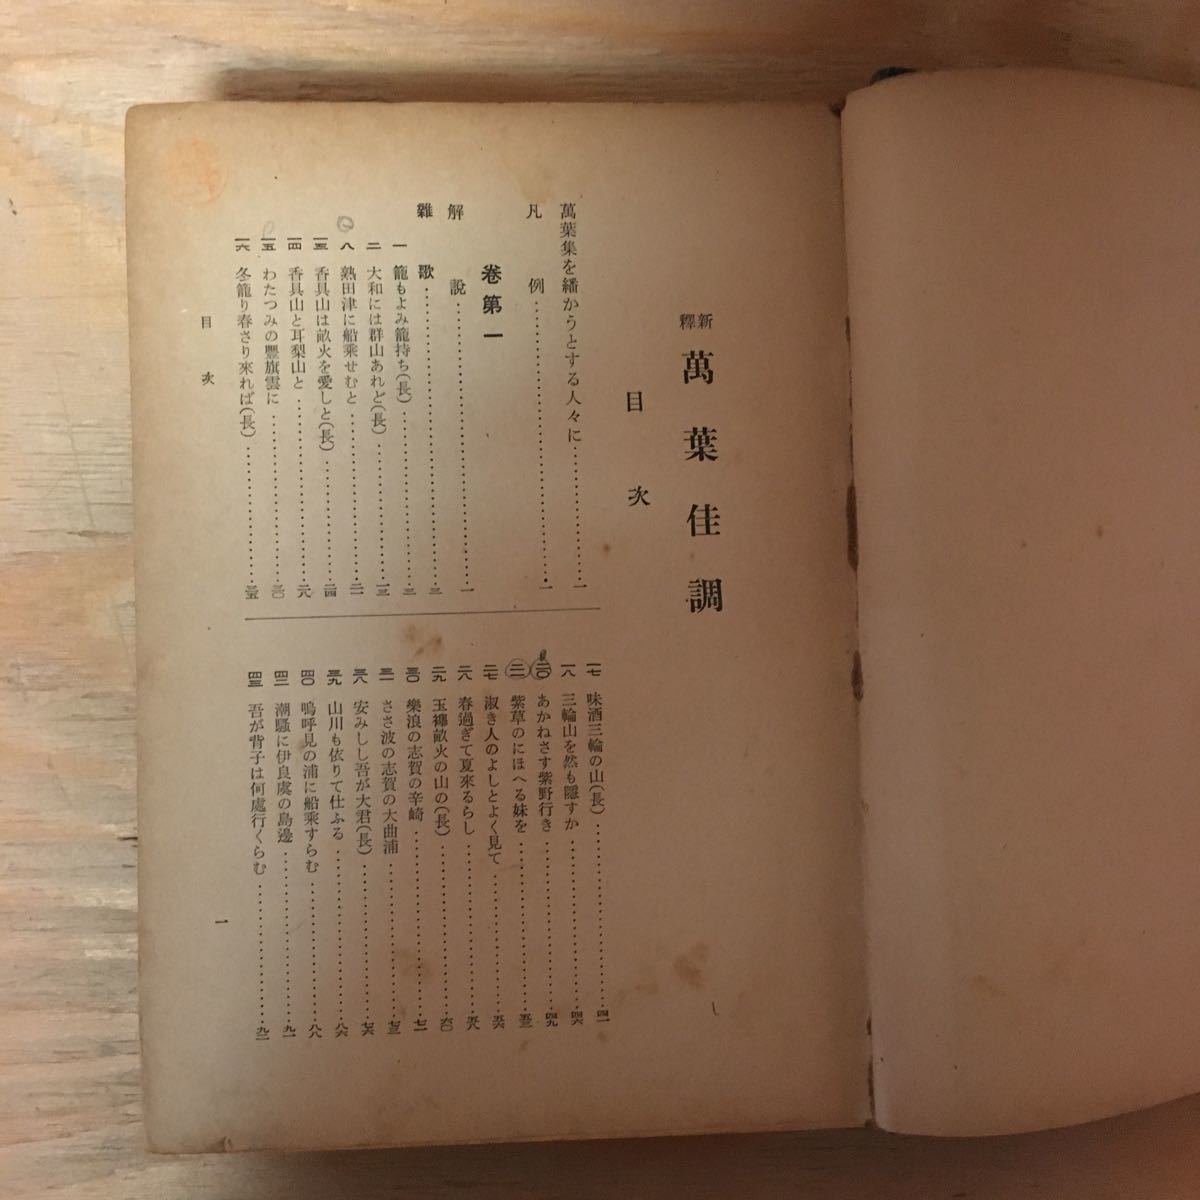 新釋 萬葉佳調
目次
萬葉集を繙かうとする人々に……一
凡例……一
卷第一
解說……一
雜歌……三
一 籠もよみ籠持ち(長)……三
二 大和には群山あれど(長)……一三
八 熟田津に船乘せむと……二一
一三 香具山は畝火を愛しと(長)……二四
一四 香具山と耳梨山と……二八
一五 わたつみの豐旗雲に……三〇
一六 冬籠り春さり來れば(長)……三五
一七 味酒三輪の山(長)……四一
一八 三輪山を然も隱すか……四六
二〇 あかねさす紫野行き……四九
二一 紫草のにほへる妹を……五三
二七 淑き人のよしとよく見て……五六
二八 春過ぎて夏來るらし……五八
二九 玉襷畝火の山の(長)……六〇
三〇 樂浪の志賀の辛崎……七一
三一 ささ波の志賀の大曲浦……七三
三八 安みしし吾が大君(長)……七六
三九 山川も依りて仕ふる……八六
四〇 嗚呼見の浦に船乘すらむ……八八
四二 潮騷に伊良虞の島邊……九一
四三 吾が背子は何處行くらむ……九二
目次
一